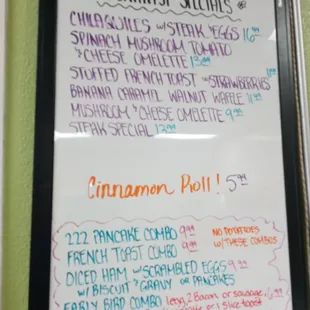 SPECIALS
CHILAQUILES w/STEAK &EGGS 16.99
SPINACH MUSHROOM TOMATO
&CHEESE OMELETTE 13.99
STUFFED FRENCH TOAST w/STRAWBERRIES
BANANA CARAMEL WALNUT WAFFLE 11.99
MUSHROOM &CHEESE OMELETTE 9.99
STEAK SPECIAL 13.99
Cinnamon Roll! 5.99
222 PANCAKE COMBO 9.99
NO POTATOES
FRENCH TOAST COMBO 9.99
w/THESE COMBOS
DICED HAM w/SCRAMBLED EGGS 9.99
w/BISCUIT &GRAVY or PANCAKES
EARLY BIRD COMBO 1 egg, 2 Bacon or sausage
or 1 slice toast